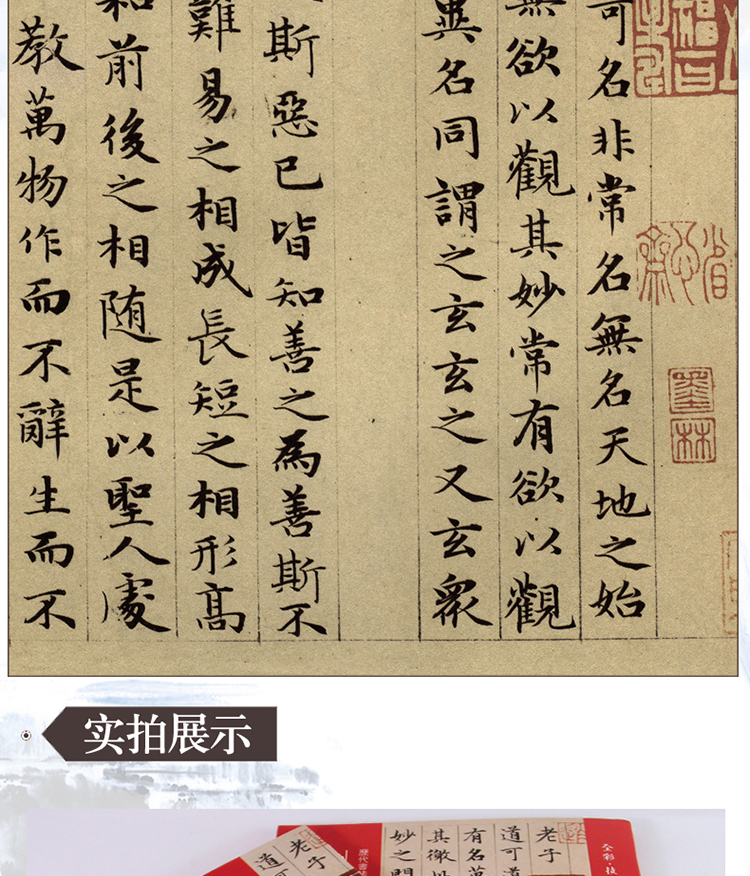 可名非常名無名天地之始
無欲以觀其妙常有欲以觀
異名同謂之玄玄之又玄衆
斯惡已皆知善之為善斯不
難易之相成長短之相形高
和前後之相随是以聖人處
教萬物作而不辭生而不
墨林
实拍展示
老子
道可道
有名萬
其徼
妙之門
老子
道可